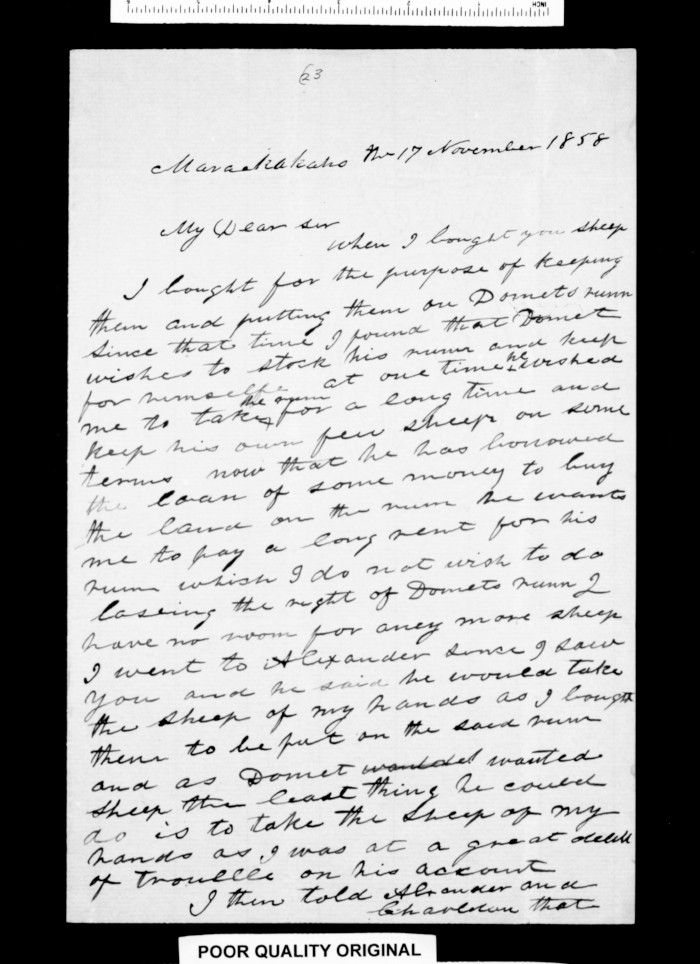 23
Maraekakaho the 17 November 1858
My Dear sir
When I bought you sheep
I bought for the purpose of keeping
them and putting them on Domets runn
since that time I found that Domet
wishes to stock his runn and keep
for himselfe at one time he wished
me to take the runn for a long time and
keep his own few sheep on some
terms now that he has borrowed
the loan of some money to buy
the land on the runn he wants
me to pay a long rent for his
runn which I do not wish to do
laseing the right of Domets runn I
have no room for aney more sheep
I went to Alexander since I saw
you and he said he would take
the sheep of my hands as I bought
them to be put on the said runn
and as Domet wanted
sheep the least thing he could
do is to take the sheep of my
hands as I was at a great
of troullle on his account
I then told Alxander and
that
POOR QUALITY ORIGINAL
INCH